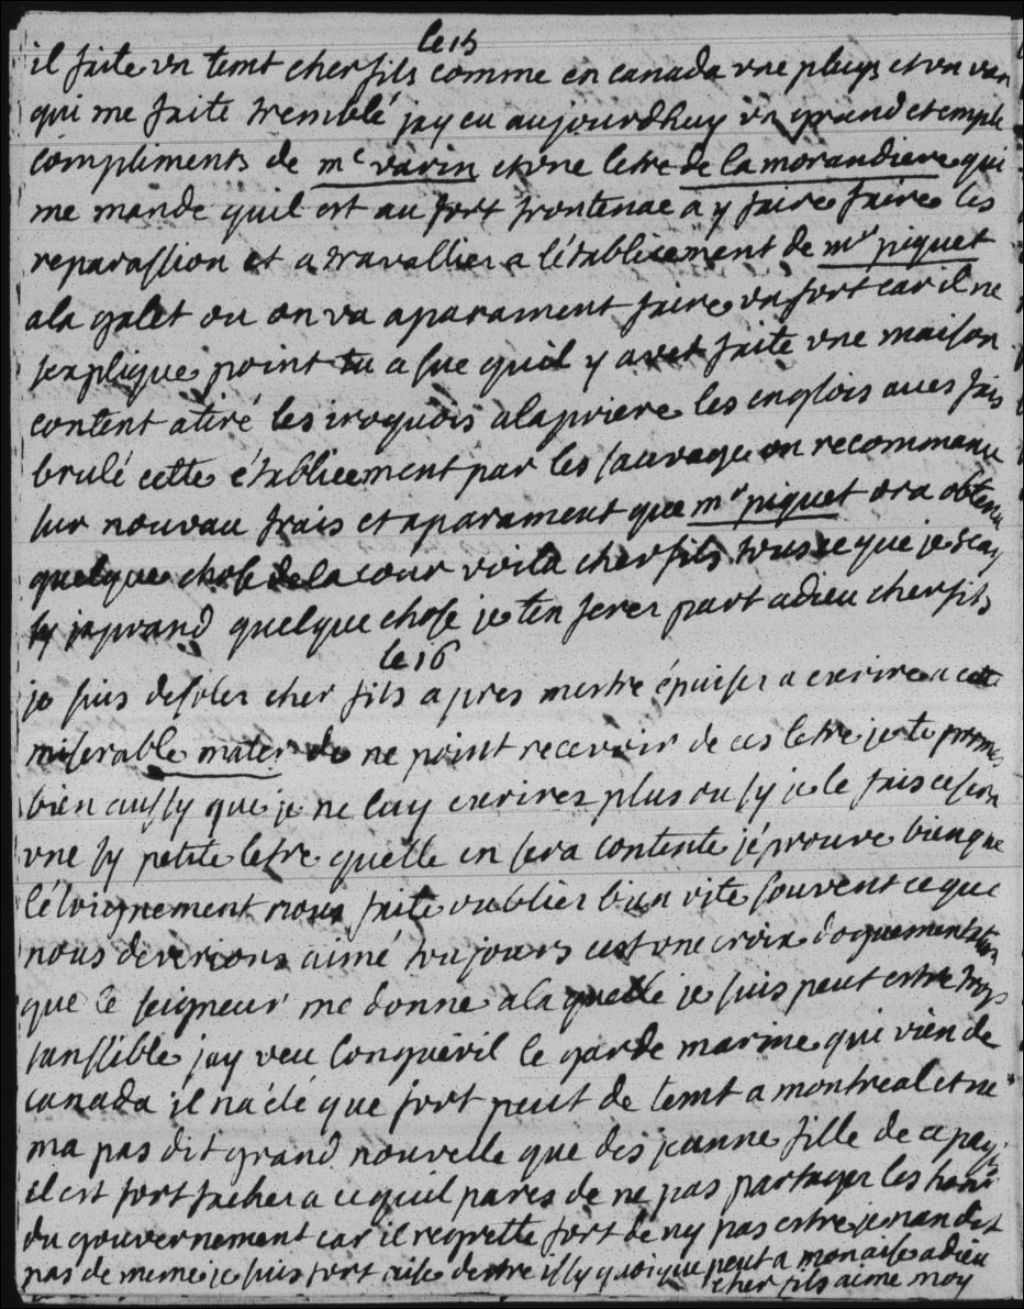 le 15
il faite un temt cher fils comme en canada une pluys et un van
qui me faite tremblé jay eu aujourdhuy un grand et emple
compliments de mr varin et une letre de la morandiere qui
me mande quil est au fort frontenac a y faire faire les
reparassion et a travallier a l'établicement de mr piquet
ala galet ou on va aparament faire un fort car il ne
sexplique point tu a sue quil y avet faite une maison
content atiré les iroquois ala priere les englois aues fais
brulé cette établicement par les sauvage on recommance
sur nouvau frais et aparament que mr piquet ora obtenu
quelque chose de la cour voila cher fils tous ce que je scay
sy japrand quelque chose je ten ferer part adieu cher fils
le 16
je suis desoler cher fils apres mestre épuiser a excrire a cette
miserable mater de ne point recevoir de ces letre je te promes
bien aussy que je ne luy excrirer plus ou sy je le fais ce sera
une sy petite letre quelle en sera contente j'éprouve bien que
l'éloignement nous faite oublier bien vite souvent ce que
nous deverions aimé toujours cest une croix doquementer
que le seigneur me donne ala quelle je suis peut estre trop
sanssible jay veu longuevil le garde marine qui vien de
canada il na été que fort peut de temt a montreal et ne
ma pas dit grand nouvelle que des jeunne fille de ce pays
il est fort facher a ce quil pares de ne pas partager les honr
du gouvernement car il regrette fort de ny pas estre je nan dit
pas de meme je suis fort aise destre issy quoique peut a mon aise adieu
cher fils aime moy